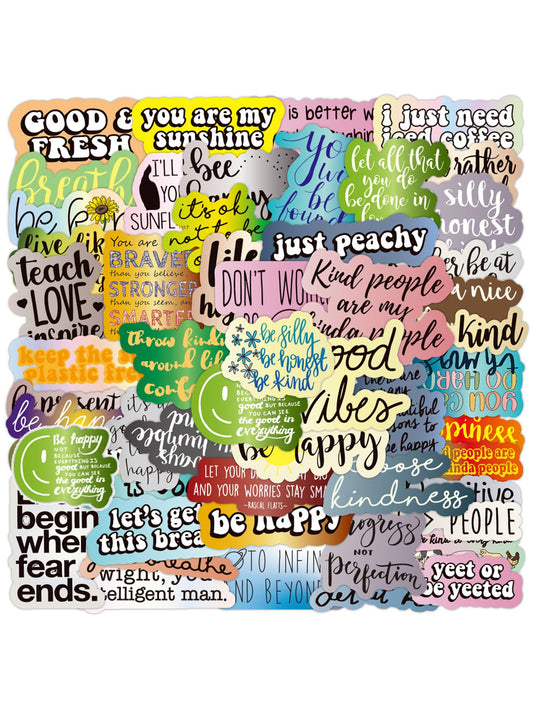 GOOD &
FRESH
you are my
sunshine
is better w
i just need
iced coffee
breath
I'LL
YOU
bee
happy
let all that
you do
be done in
love
rather
silly
honest
kind
SUNFL
it's ok
not to be
live lik
teach
LOVE
inspire
You are
BRAVER
than you believe
STRONGER
than you seem, and
SMARTER
life
just peachy
DON'T WOR
Kind people
are my
kinda people
er be at
a nice
kind
keep the s
plastic fre
throw kind
around lik
confe
be silly
be honest
be kind
good
vibes
be present
it's
happy
EVERYTHING IS
good BUT BECAUSE
YOU CAN SEE
the good in
everything
Be happy
NOT
BECAUSE
EVERYTHING IS
good BUT BECAUSE
YOU CAN SEE
the good in
everything
be happy
choose
kindness
piness
d people are
inda people
begin
when
fear
ends.
let's get
this brea
LET YOUR
AND YOUR WORRIES STAY SM
-RASCAL FLATTS-
be happy
progress
NOT
perfection
positive
PEOPLE
breathe
wight, you
telligent man.
TO INFIN
AND BEYON
yeet or
be yeeted